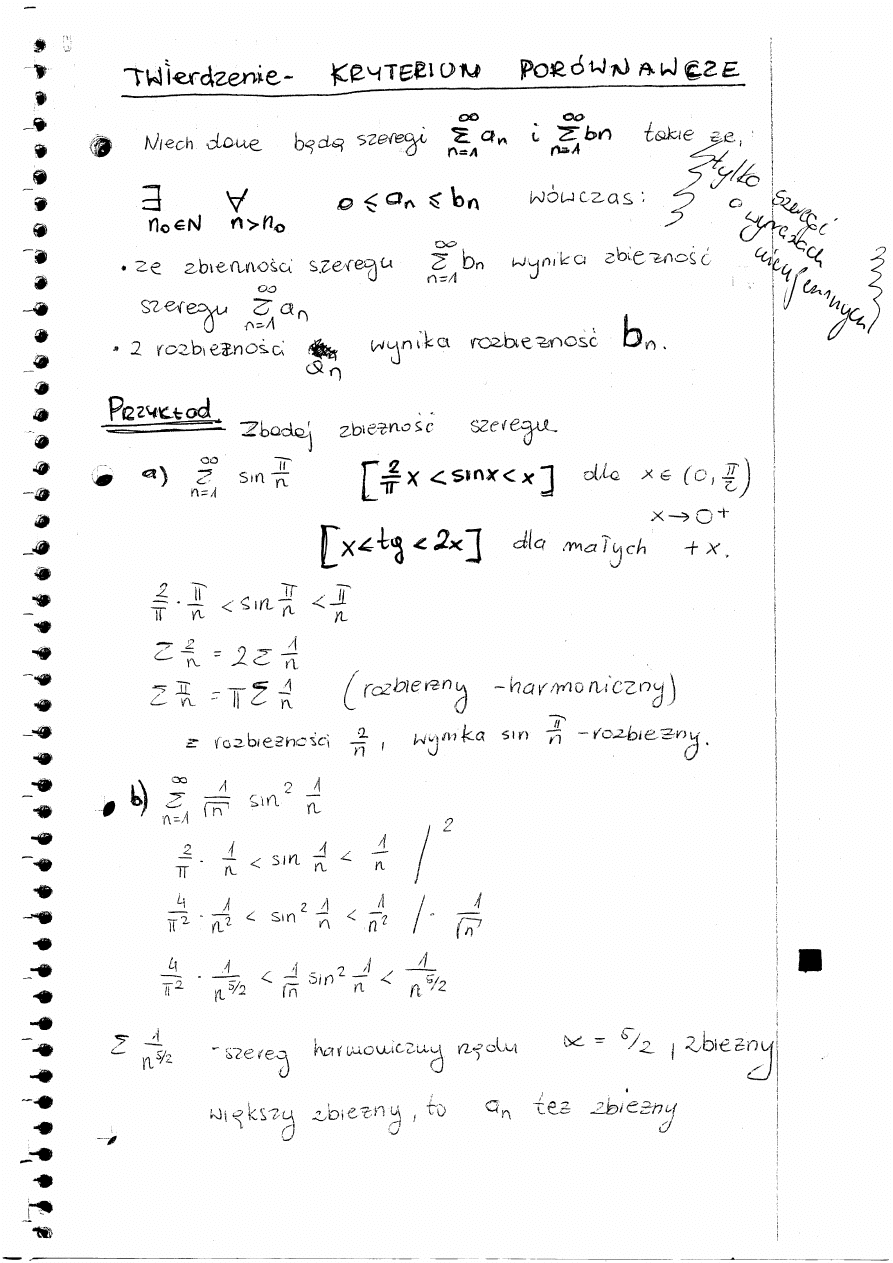 TWIerdzenie - KRYTERIUM PORÓWNAWCZE
Niech dane będą szeregi ∑_{n=1}^{∞} a_n i ∑_{n=1}^{∞} bn takie że,
tylko szeregi
o wyrazach
nieujemnych
∃_{n₀∈N} ∀_{n>n₀} 0 ≤ a_n ≤ b_n wówczas:
• ze zbieżności szeregu ∑_{n=1}^{∞} b_n wynika zbieżność
szeregu ∑_{n=1}^{∞} a_n
• z rozbieżności a_n wynika rozbieżność b_n.
Przykład Zbadaj zbieżność szeregu
a) ∑_{n=1}^{∞} sin π/n [2/π x < sinx < x] dla x ∈ (0, π/2)
x → 0+
[x < tg < 2x] dla małych + x.
2/π · π/n < sin π/n < π/n
∑ 2/n = 2∑ 1/n
∑ π/n = π∑ 1/n (rozbierzny - harmoniczny)
z rozbieżności 2/n, wynika sin π/n - rozbieżny.
b) ∑_{n=1}^{∞} 1/√n sin² 1/n
2/π · 1/n < sin 1/n < 1/n /²
4/π² · 1/n² < sin² 1/n < 1/n² / · 1/√n
4/π² · 1/n^{5/2} < 1/√n sin² 1/n < 1/n^{5/2}
∑ 1/n^{5/2} - szereg harmoniczny rzędu α = 5/2, zbieżny
większy zbieżny, to a_n też zbieżny